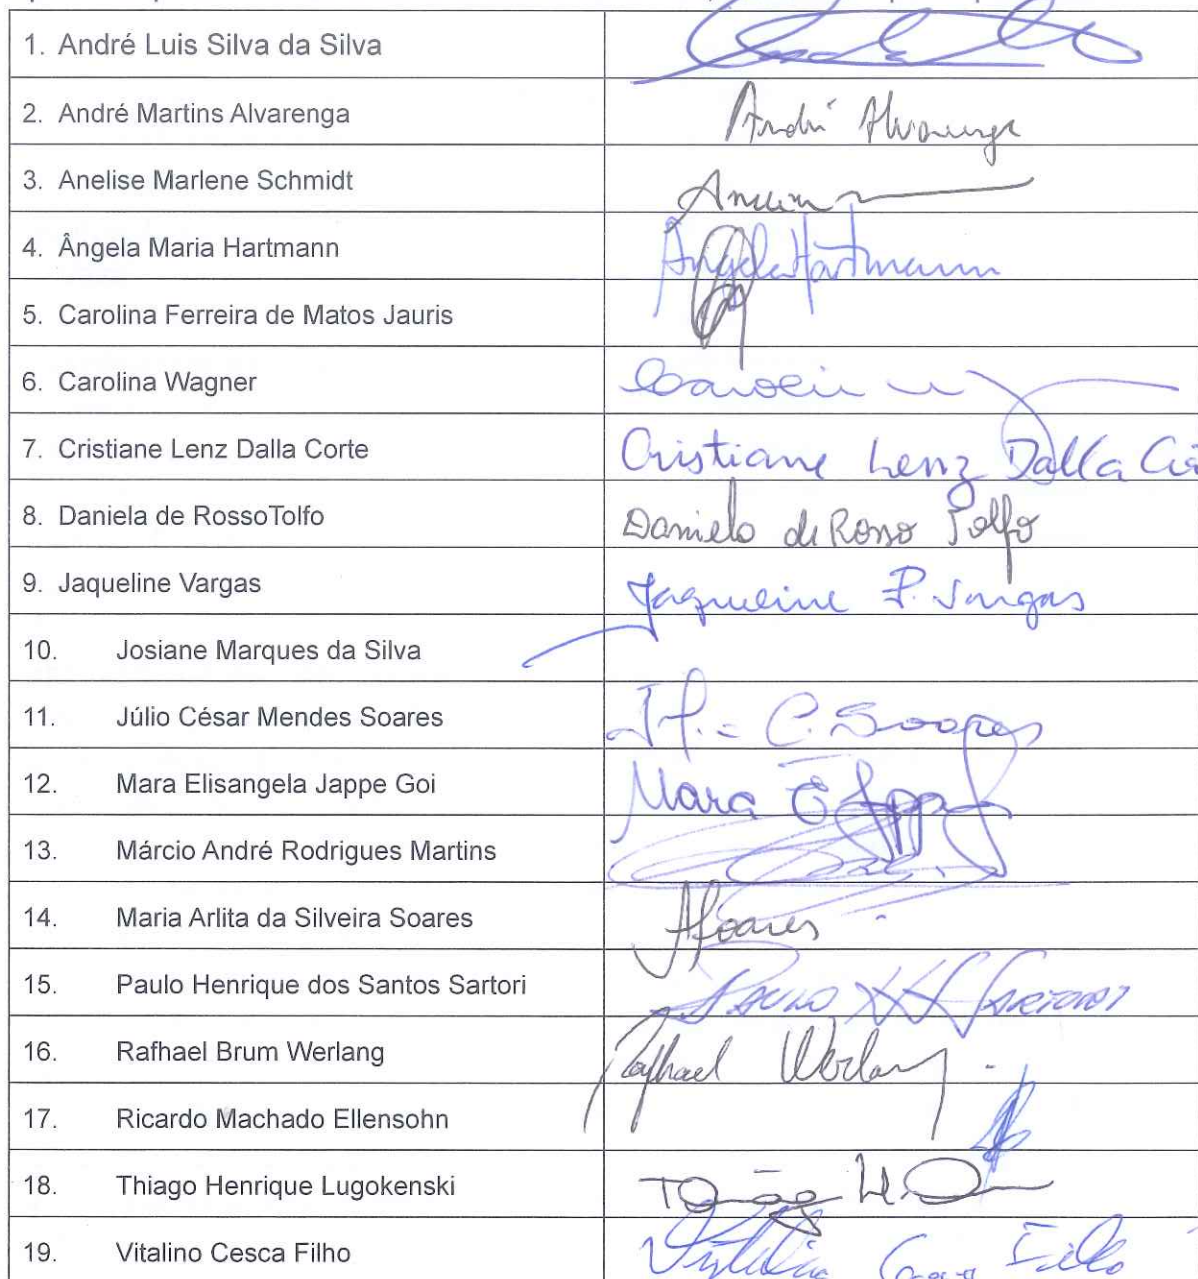 1. André Luis Silva da Silva
2. André Martins Alvarenga André Alvarenga
3. Anelise Marlene Schmidt
4. Ângela Maria Hartmann Ângela Hartmann
5. Carolina Ferreira de Matos Jauris
6. Carolina Wagner
7. Cristiane Lenz Dalla Corte Cristiane Lenz Dalla
8. Daniela de RossoTolfo Daniela de Rosso Tolfo
9. Jaqueline Vargas Jaqueline P. Vargas
10. Josiane Marques da Silva
11. Júlio César Mendes Soares C. Soares
12. Mara Elisangela Jappe Goi Mara E
13. Márcio André Rodrigues Martins
14. Maria Arlita da Silveira Soares
15. Paulo Henrique dos Santos Sartori Paulo H S Sartori
16. Rafhael Brum Werlang Rafhael Werlang
17. Ricardo Machado Ellensohn
18. Thiago Henrique Lugokenski
19. Vitalino Cesca Filho Filho